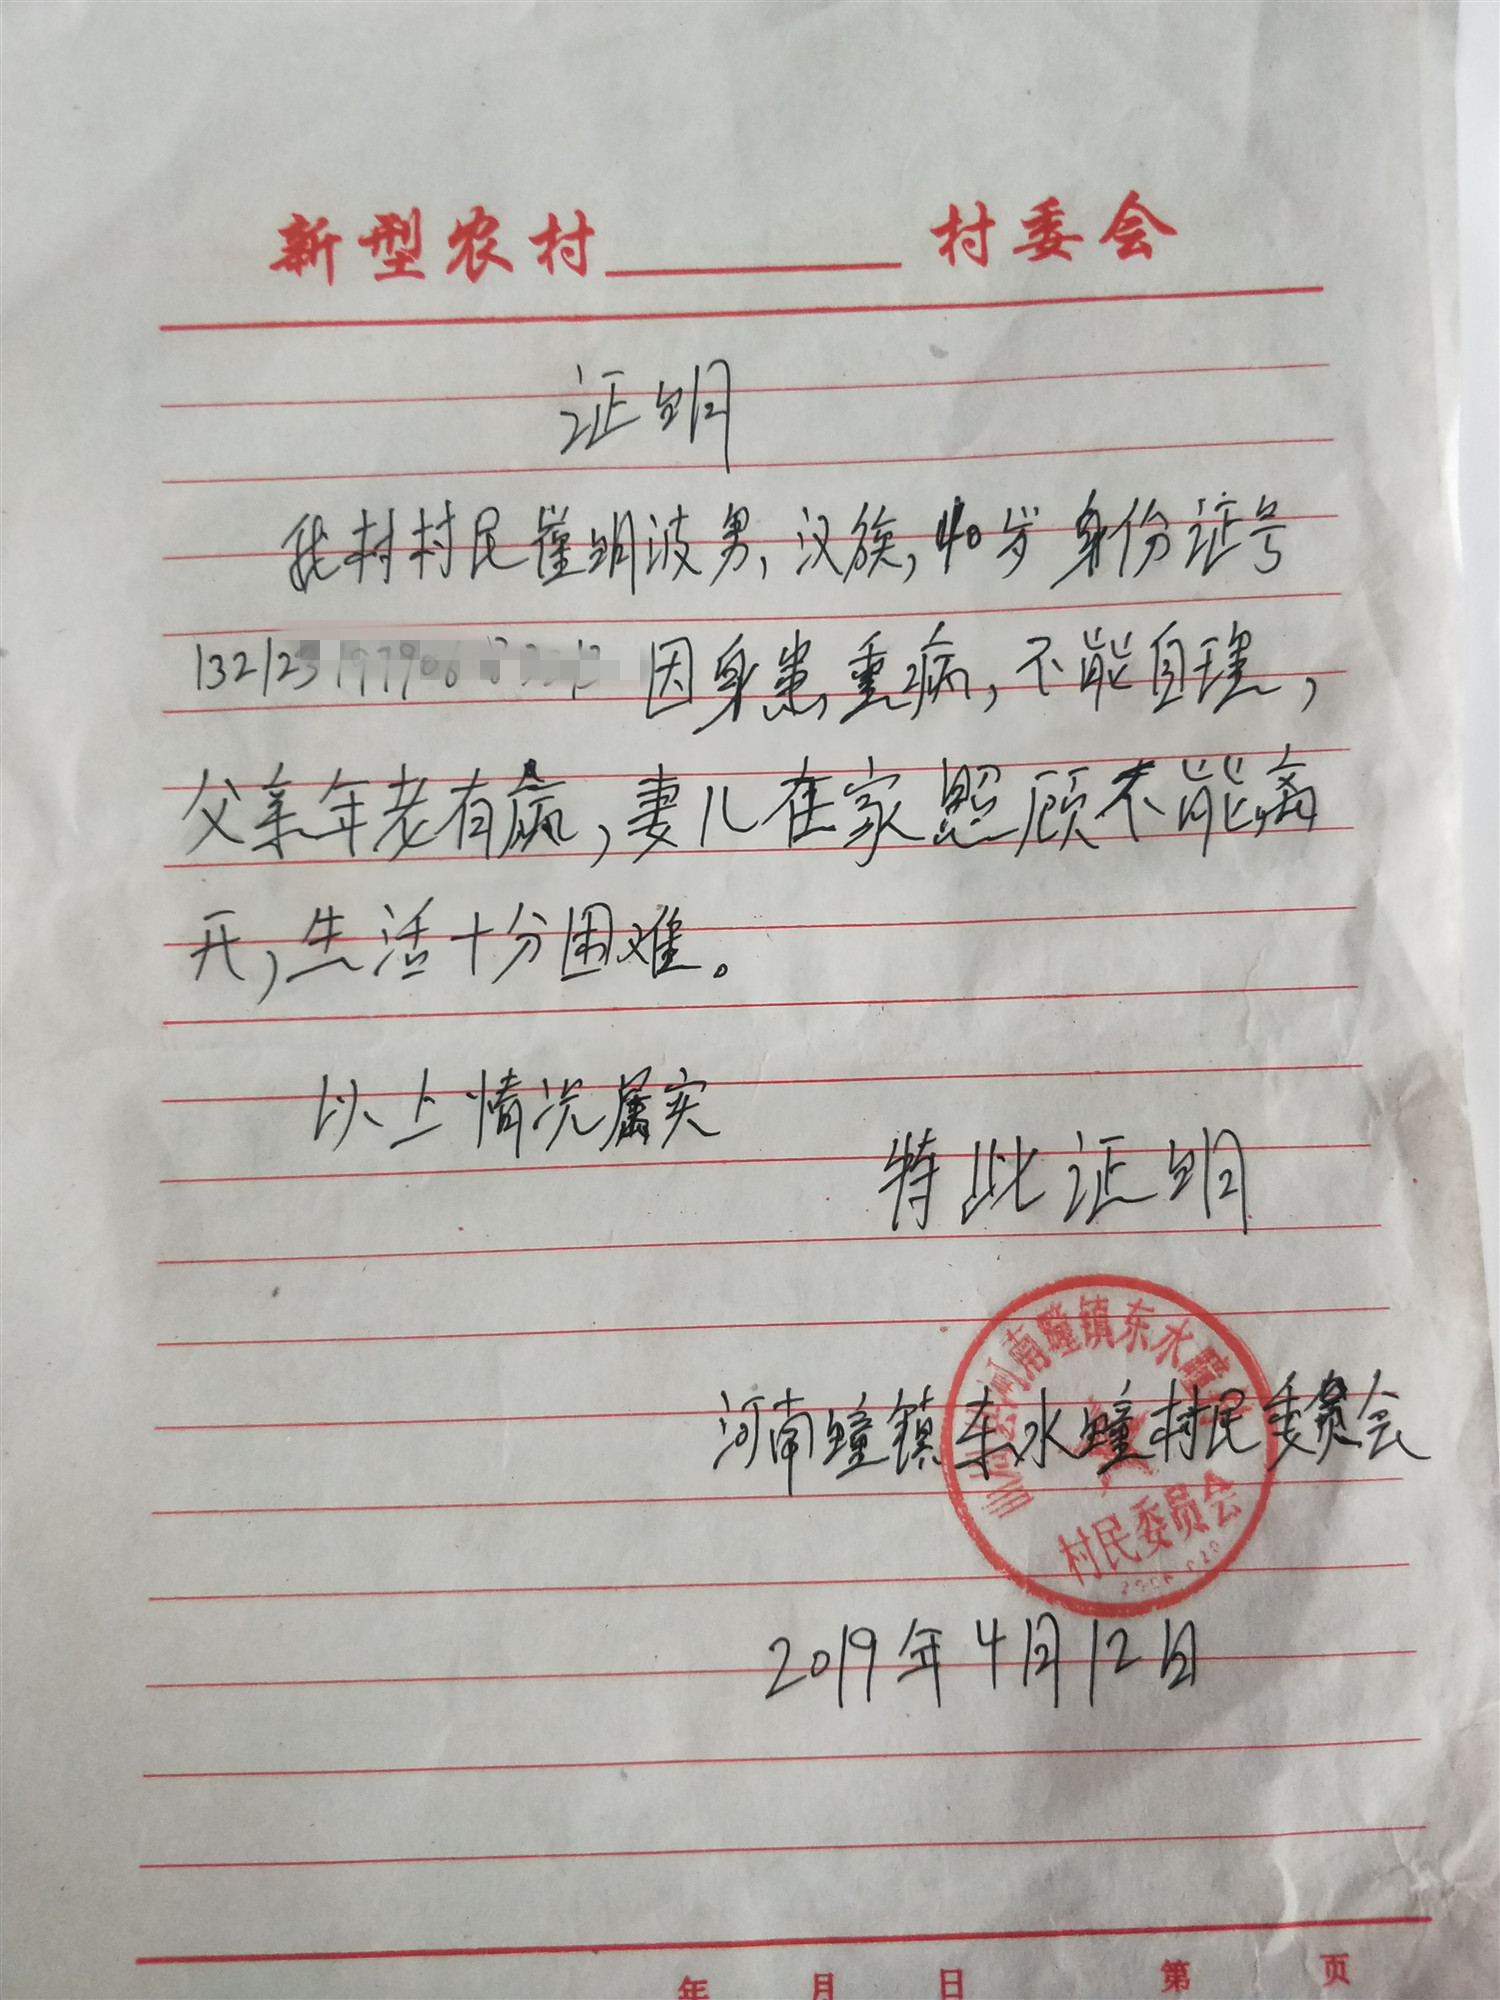 新型农村 村委会
证明
我村村民崔明波男,汉族,40岁身份证号
因身患重病,不能自理,
父亲年老有病,妻儿在家照顾不能离
开,生活十分困难。
以上情况属实
特此证明
河南疃镇东水疃
村民委员会
河南疃镇东水疃村民委员会
2019年4月12日
年 月 日 第 页